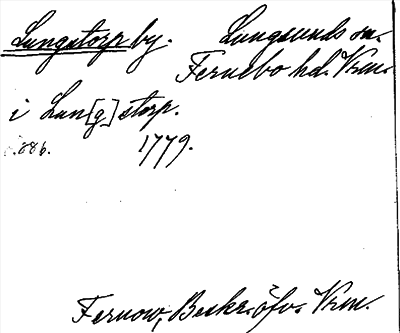 Lungstorp by. Lungsunds sn.
Fernebo hd. Vrm.
i Lun[g]storp.
s. 886. 1779.
Fernow, Beskr. öfv. Vrm.